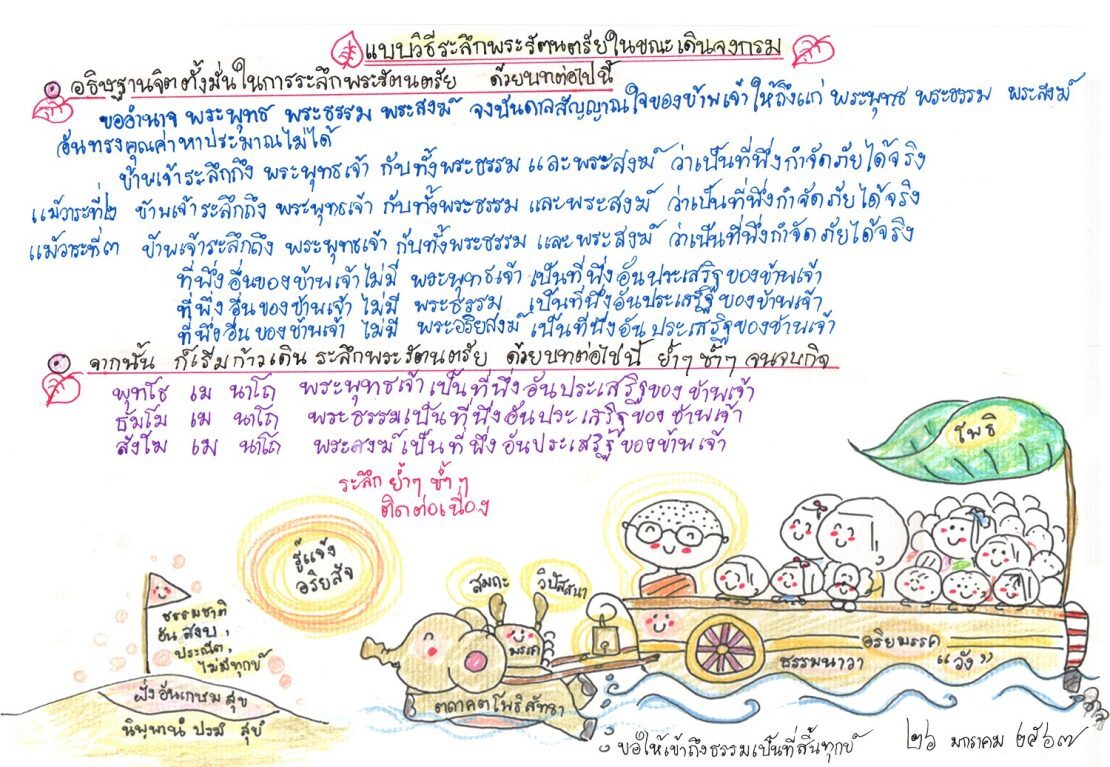 แบบวิธีระลึกพระรัตนตรัยในขณะเดินจงกรม
อธิษฐานจิตตั้งมั่นในการระลึกพระรัตนตรัย ด้วยบทต่อไปนี้
ขออำนาจ พระพุทธ พระธรรม พระสงฆ์ จงบันดาลสัญญาณใจของข้าพเจ้าให้ถึงแก่ พระพุทธ พระธรรม พระสงฆ์
อันทรงคุณค่าหาประมาณไม่ได้
ข้าพเจ้าระลึกถึง พระพุทธเจ้า กับทั้งพระธรรม และพระสงฆ์ ว่าเป็นที่พึ่งกำจัดภัยได้จริง
แม้วาระที่๒ ข้าพเจ้าระลึกถึง พระพุทธเจ้า กับทั้งพระธรรม และพระสงฆ์ ว่าเป็นที่พึ่งกำจัดภัยได้จริง
แม้วาระที่๓ ข้าพเจ้าระลึกถึง พระพุทธเจ้า กับทั้งพระธรรม และพระสงฆ์ ว่าเป็นที่พึ่งกำจัดภัยได้จริง
ที่พึ่งอื่นของข้าพเจ้าไม่มี พระพุทธเจ้า เป็นที่พึ่งอันประเสริฐของข้าพเจ้า
ที่พึ่งอื่นของข้าพเจ้า ไม่มี พระธรรม เป็นที่พึ่งอันประเสริฐของข้าพเจ้า
ที่พึ่งอื่นของข้าพเจ้า ไม่มี พระอริยสงฆ์ เป็นที่พึ่งอันประเสริฐของข้าพเจ้า
จากนั้น ก็เริ่มก้าวเดิน ระลึกพระรัตนตรัย ด้วยบทต่อไปนี้ ย้ำๆ ซ้ำๆ จนจบกิจ
พุทโธ เม นาโถ พระพุทธเจ้าเป็นที่พึ่งอันประเสริฐของข้าพเจ้า
ธัมโม เม นาโถ พระธรรมเป็นที่พึ่งอันประเสริฐของข้าพเจ้า
สังโฆ เม นาโถ พระสงฆ์เป็นที่พึ่งอันประเสริฐของข้าพเจ้า
ระลึก ย้ำๆ ซ้ำๆ
ติดต่อเนื่อง
โพธิ
รู้แจ้ง
อริยสัจ
สมถะ
วิปัสสนา
มรรค
ธรรมชาติ
อันสงบ,
ประณีต,
ไม่มีทุกข์
ฝั่งอันเกษมสุข
นิพพานัง ปรมัง สุขัง
ตถาคตโพธิสัทธา
อริยมรรค
ธรรมนาวา "วัง"
ขอให้เข้าถึงธรรมเป็นที่สิ้นทุกข์
๒๖ มกราคม ๒๕๖๗